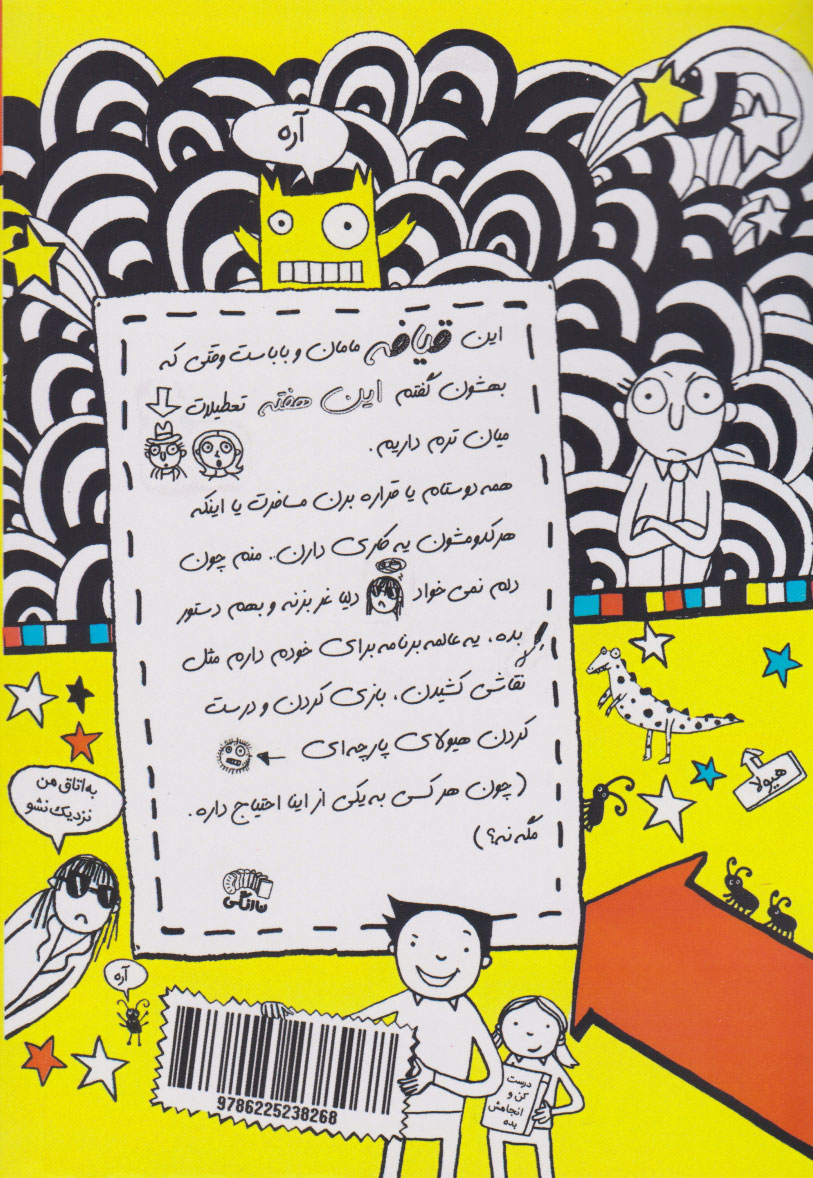 آره
این قیافه مامان و باباست وقتی که
بهشون گفتم این هفته تعطیلات
میان ترم داریم.
همه دوستام یا قراره برن مسافرت یا اینکه
هرکدومشون یه کاری دارن.. منم چون
دلم نمی خواد دلیا غر بزنه و بهم دستور
بده، یه عالمه برنامه برای خودم دارم مثل
نقاشی کشیدن، بازی کردن و درست
کردن هیولای پارچه‌ای
(چون هر کسی به یکی از اینا احتیاج داره.
مگه نه؟)
نارنگی
هیولا
به اتاق من
نزدیک نشو
آره
9786225238268
درست
کن و
انجامش
بده